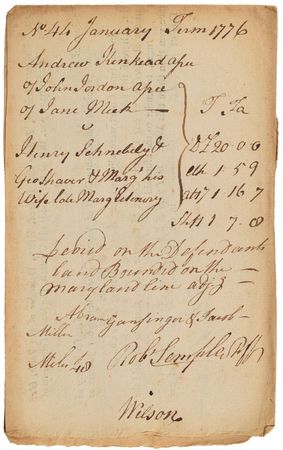 No 44 January Term 1776
Andrew Kinkead assee
of John Jordon assee
of Jane Meek
v
Fi Fa
Henry Schnebely &
Geo Shaver & Marg his
Wife late Marg
Dt £20 . 0 0
1 5 9
1 16 7
Shff 1 7 . 8
Levied on the Defendants
land Bounded on the
Maryland line adjg
Abram Gansinger & Jacob
Miller
Miles 48
Robt Semple Shff
Wilson